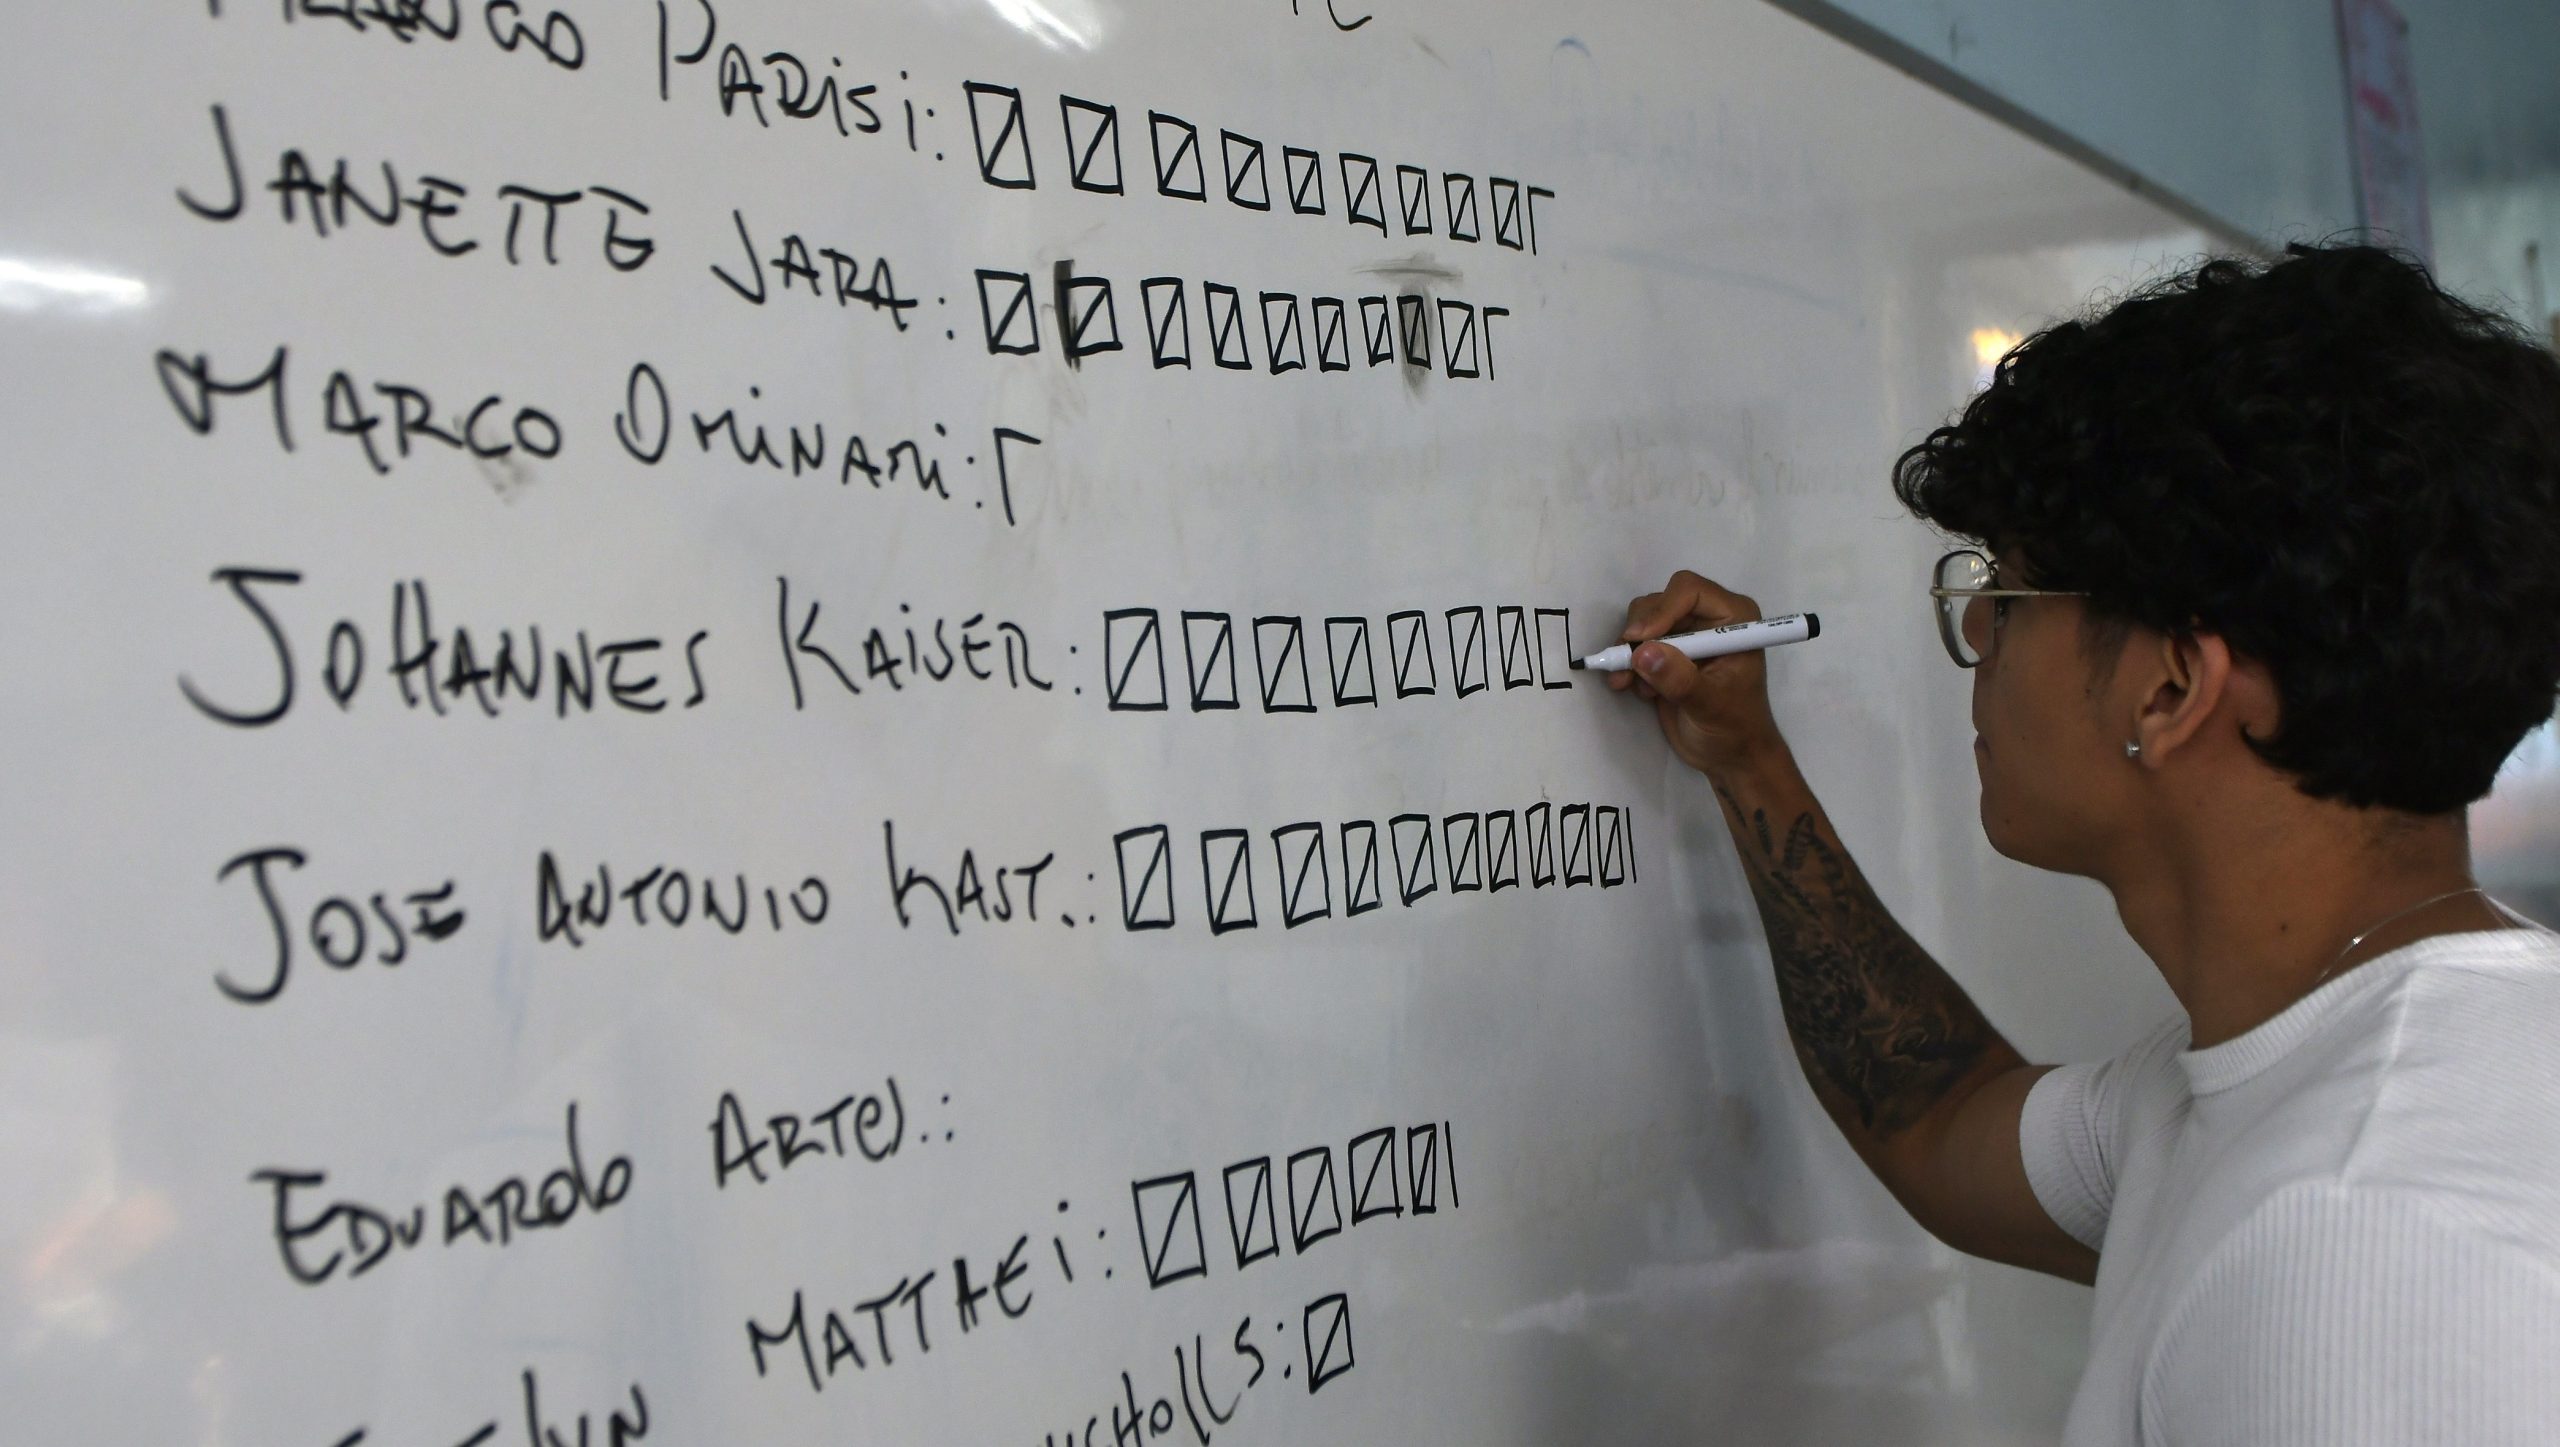 PARISI:
JANETTE JARA:
MARCO OMINAMI:
JOHANNES KAISER:
JOSE ANTONIO KAST.:
EDUARDO ARTES:
MATTHEI: